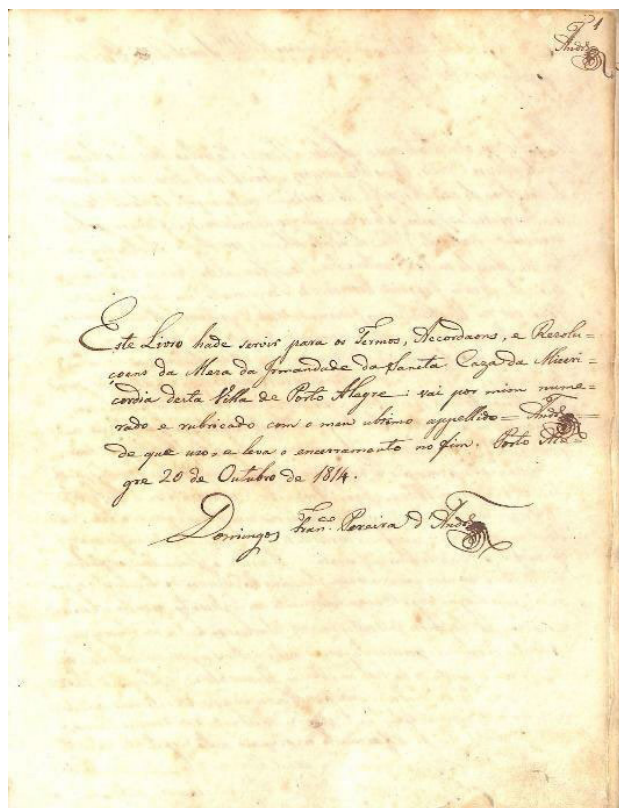 1
Andr.e
Este Livro hade servir para os Termos, Accordaons, e Rezolu=
çoens da Meza da Irmandade da Sancta Caza da Mizeri=
cordia desta Villa de Porto Alegre: vai por mim nume=
rado e rubricado com o meu ultimo appellido = Andr.e =
de que uzo, e leva o encerramento no fim. Porto Ale=
gre 20 de Outubro de 1814.
Domingos Fran.co Pereira d'Andr.e